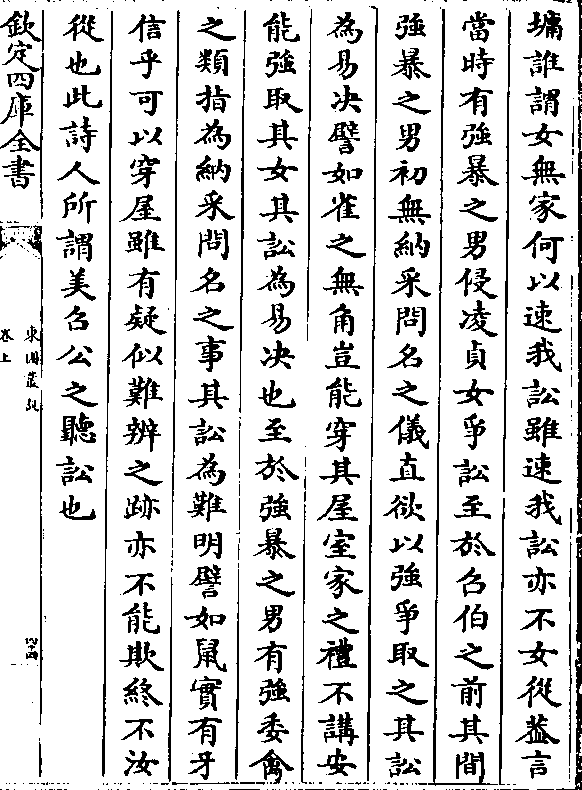 墉誰謂女無家何以速我訟雖速我訟亦不女從葢言
當時有強暴之男侵凌貞女爭訟至於召伯之前其間
強暴之男初無納采問名之儀直欲以強爭取之其訟
為易决譬如雀之無角豈能穿其屋室家之禮不講安
能強取其女其訟為易决也至於強暴之男有強委禽
之類指為納采問名之事其訟為難明譬如鼠實有牙
信乎可以穿屋雖有疑似難辨之跡亦不能欺終不汝
從也此詩人所謂美召公之聽訟也
欽定四庫全書
東園叢説
卷上
四十四